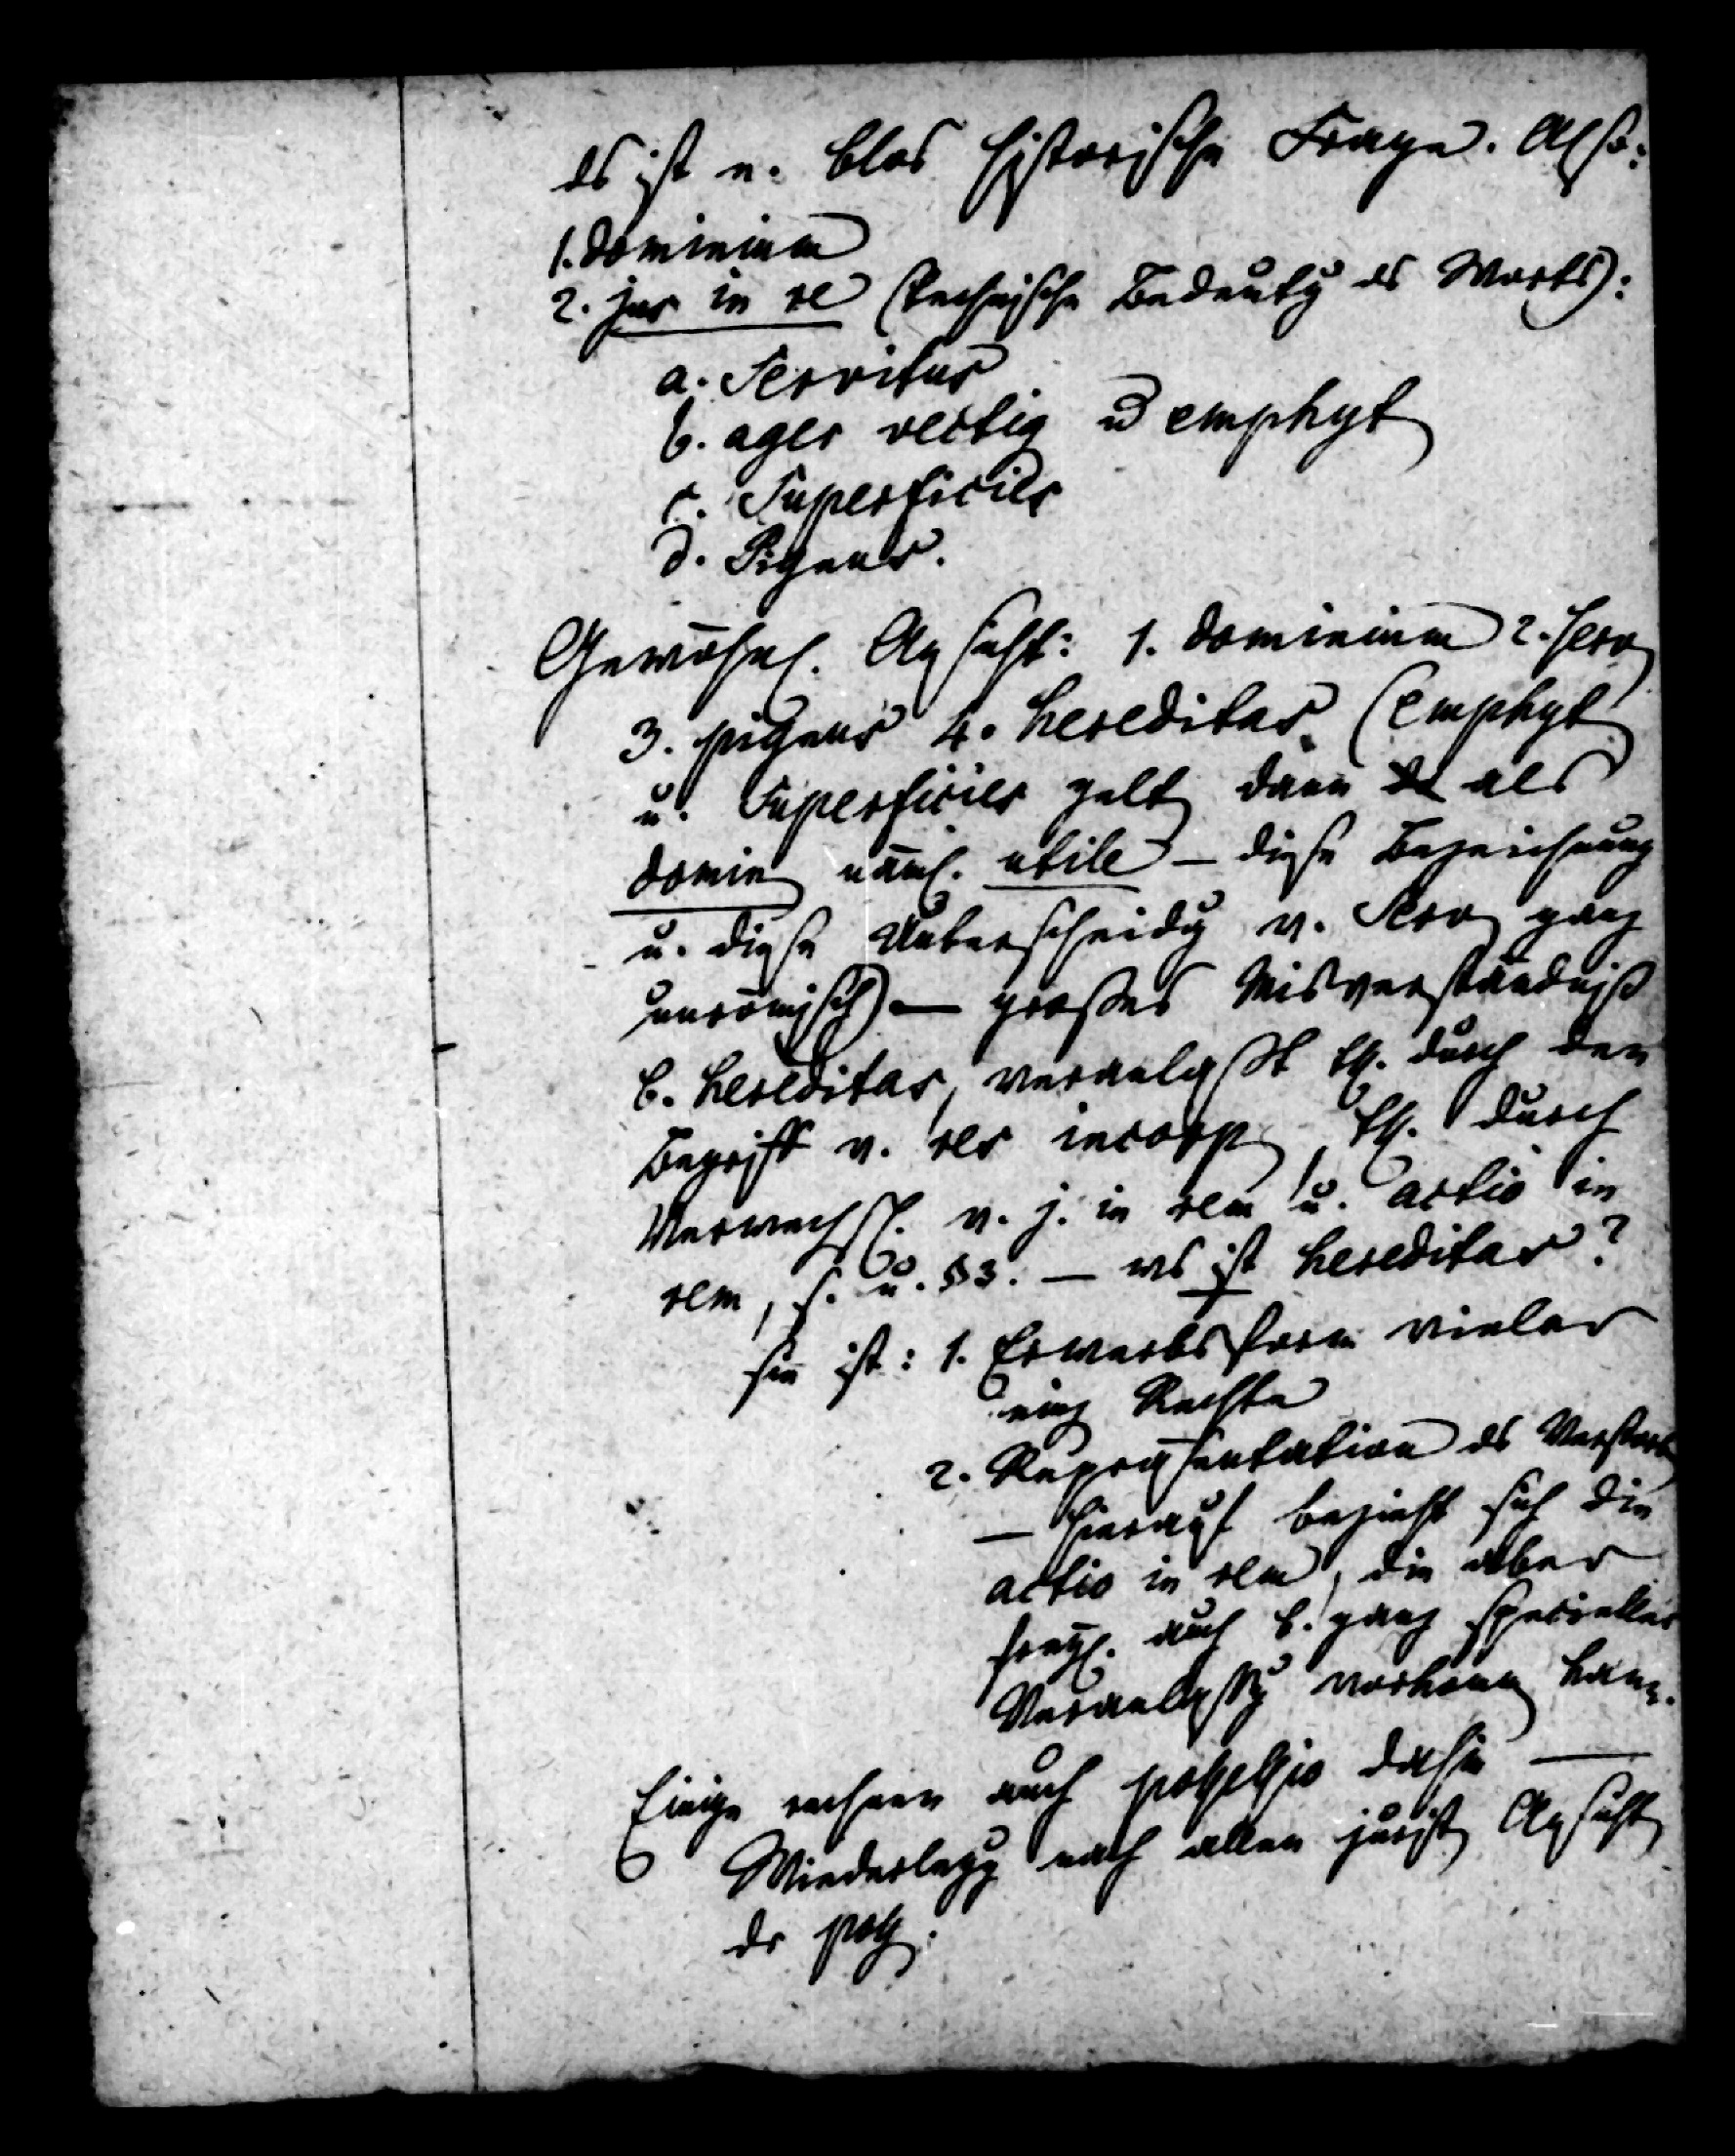 ds ist e. blos historische Frage. Also:
1. dominium
2. jus in re (technische Bedeutg ds Worts):
a. Servitus
b. ager vectig u emphyt
c. Superficies
d. Pignus.
Gewöhnl. Ansicht: 1. dominium 2. serv
3. pignus 4. hereditas (emphyt
u. Superficies gelt dann als
domin näml. utile – diese Bezeichnung
u. diese Unterscheidg v. Serv ganz
unrömisch) – großes Misverständniß
b. hereditas, veranlaßt th. durch den
Begriff v. res incorp, th. durch
Verwechsl. v. j. in rem u. actio in
rem, s. u. §3. – ws ist hereditas?
sie ist: 1. Erwerbsform vieler
einz Rechte
2. Repräsentation ds Verstorb
– hierauf bezieht sich die
actio in rem, die aber
freyl. auch b. ganz specieller
Veranlaßg vorkom kann.
Einige rechnen auch possessio dahin –
Wiederlegg nach allen jurist Ansicht
dr poss.